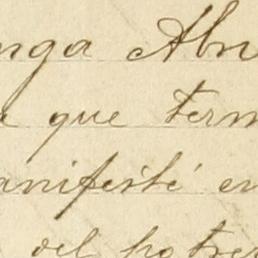 nga Abn
que term
anifesté en
del potrer